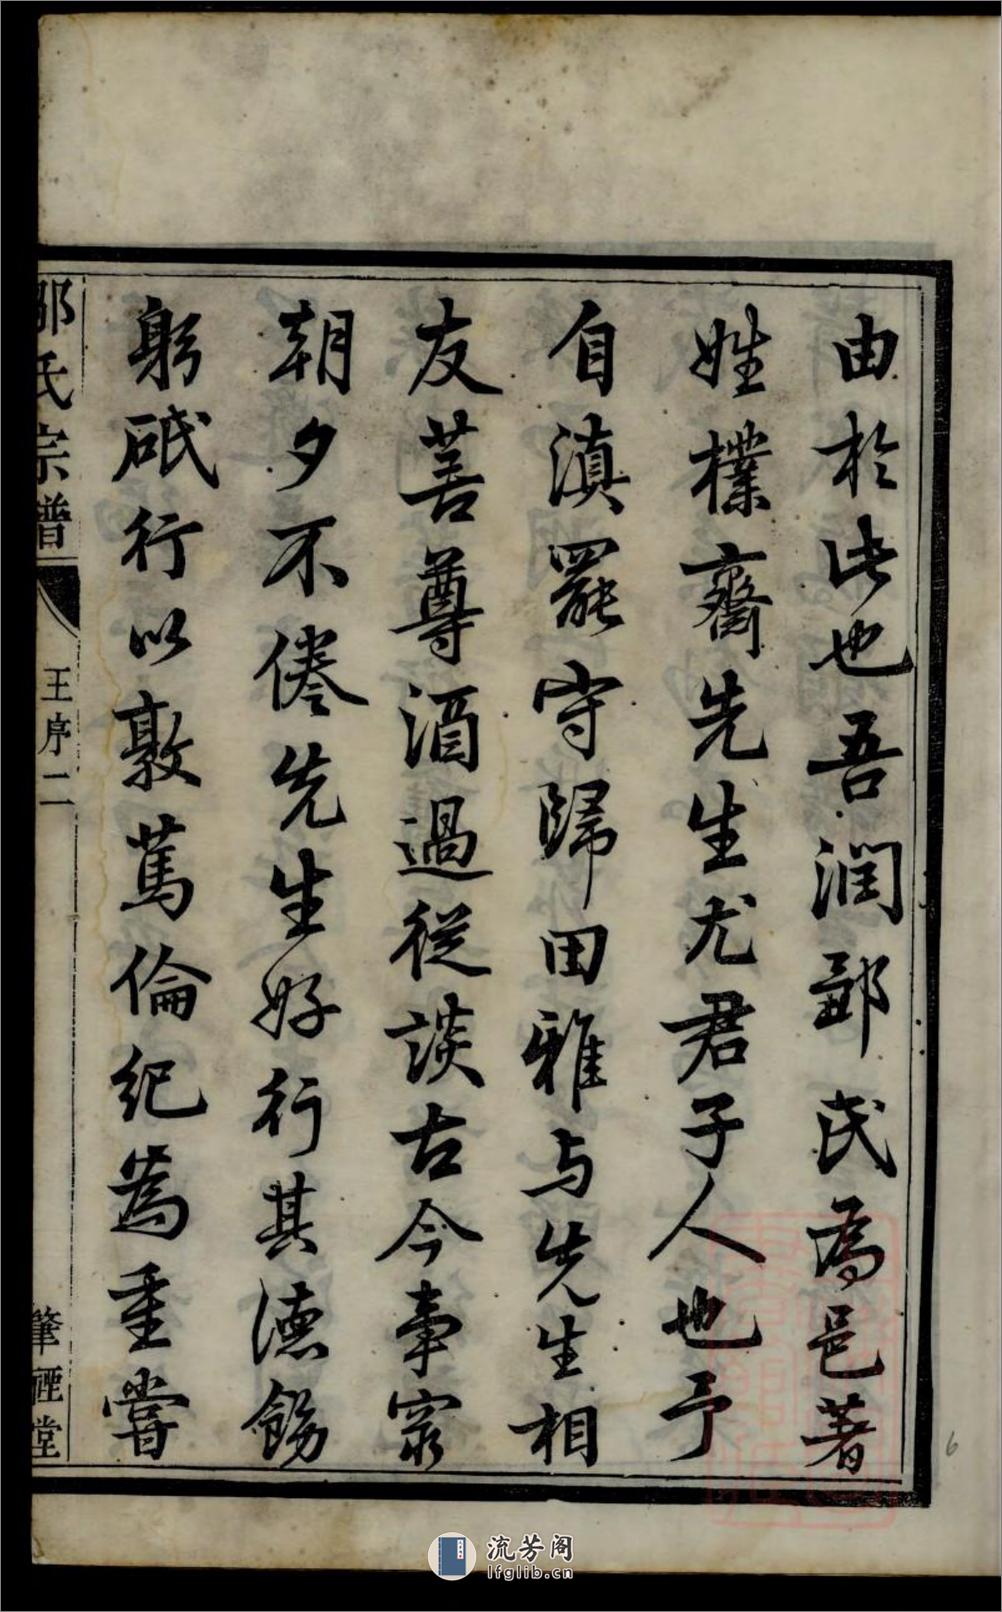 由於此也吾潤鄒氏為邑著
姓樸齋先生尤君子人也予
自滇罷守歸田雅与先生相
友善尊酒過從談古今事窮
朝夕不倦先生好行其德飭
躬砥行以敦篤倫紀為重嘗
鄒氏宗譜
王序二
肇禋堂
6
流芳阁
lfglib.cn